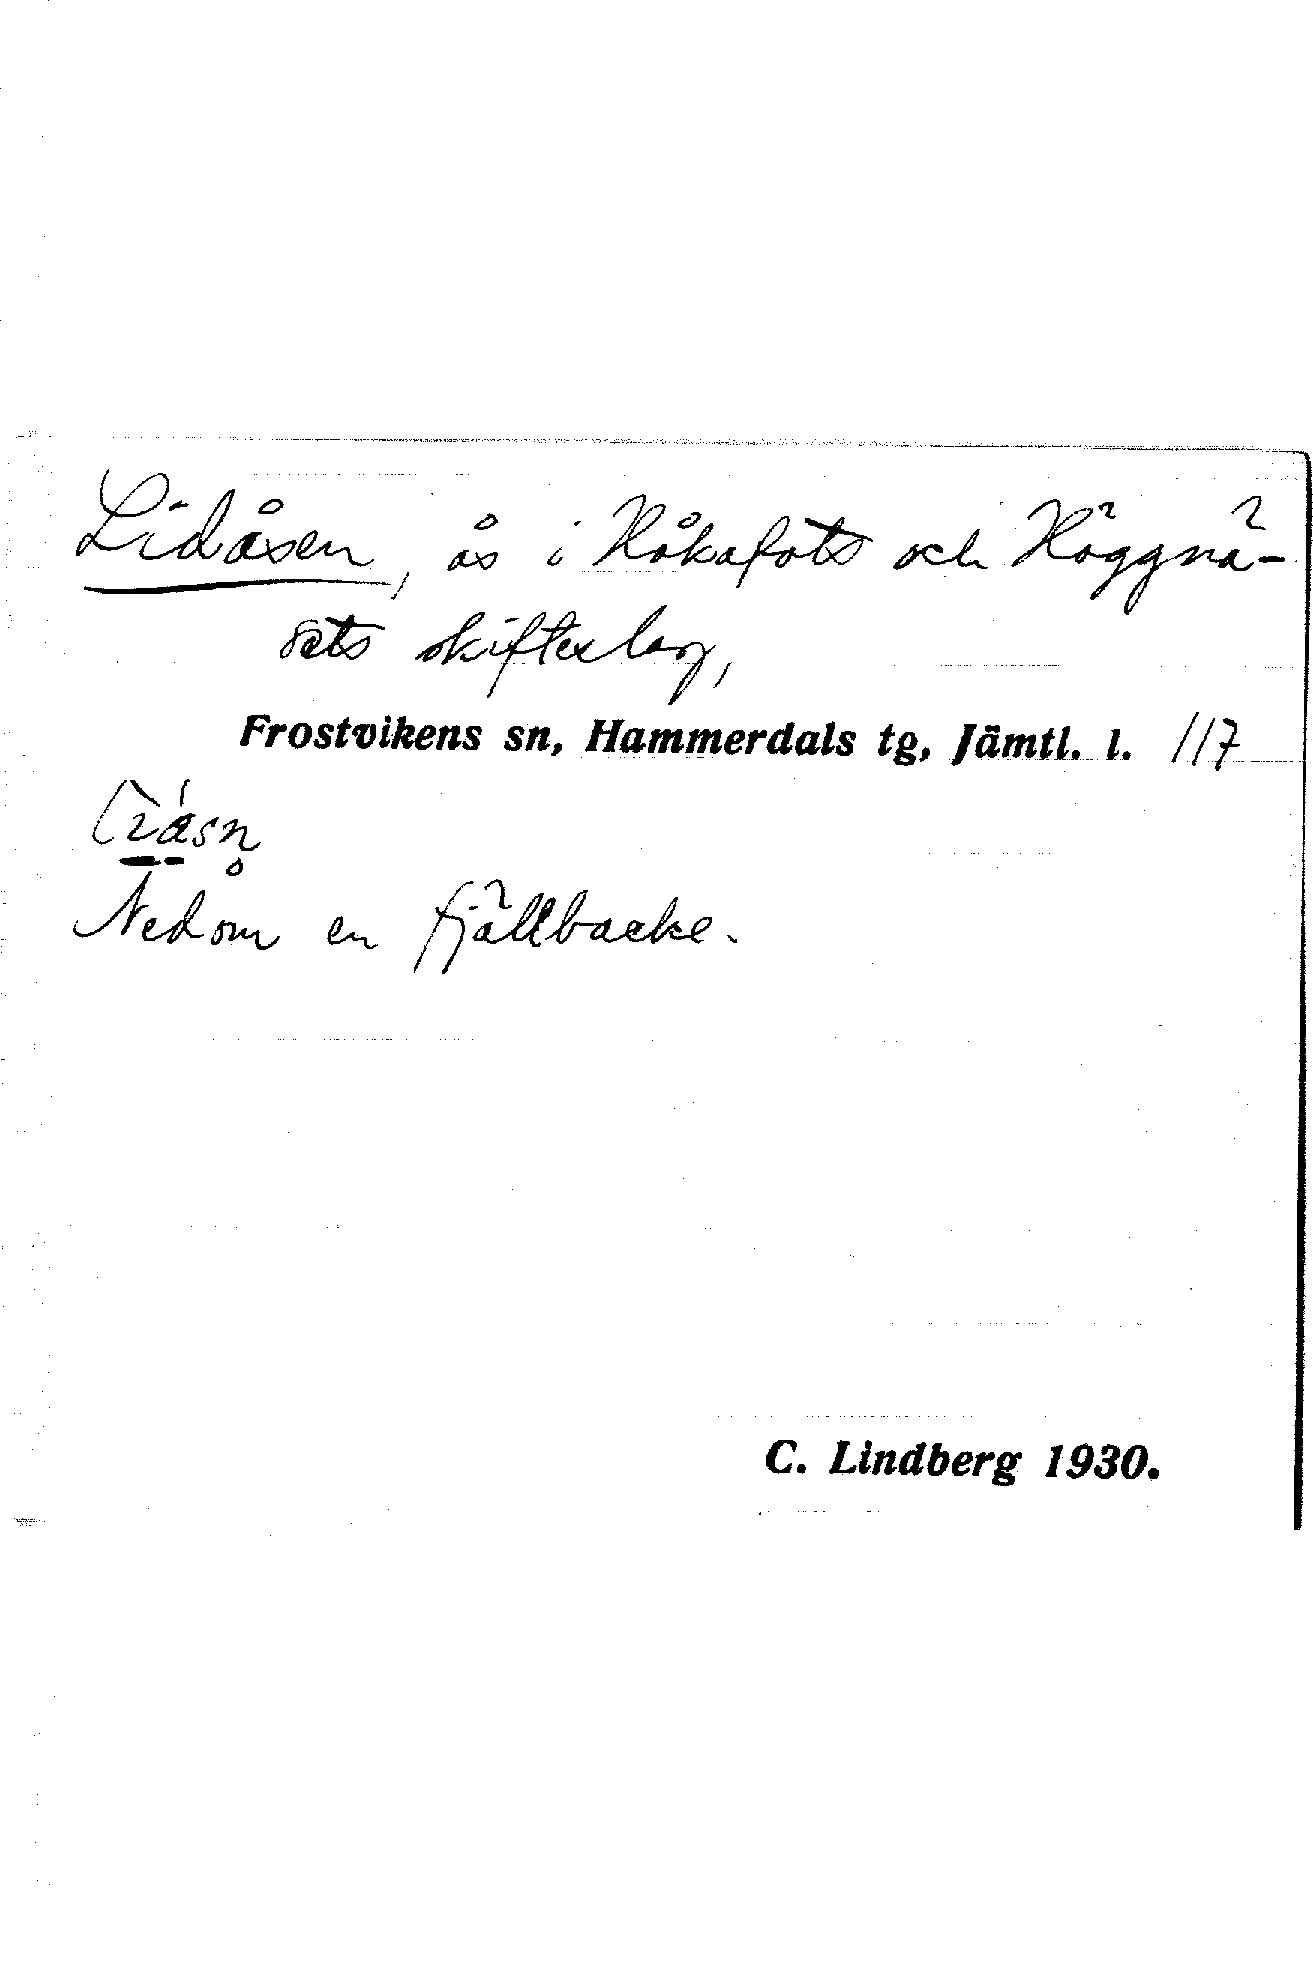 Lidåsen, ås i Håkafots och Häggnä-
sets skifteslag,
Frostvikens sn, Hammerdals tg, Jämtl. l. 117
Nedom en fjällbacke.
C. Lindberg 1930.